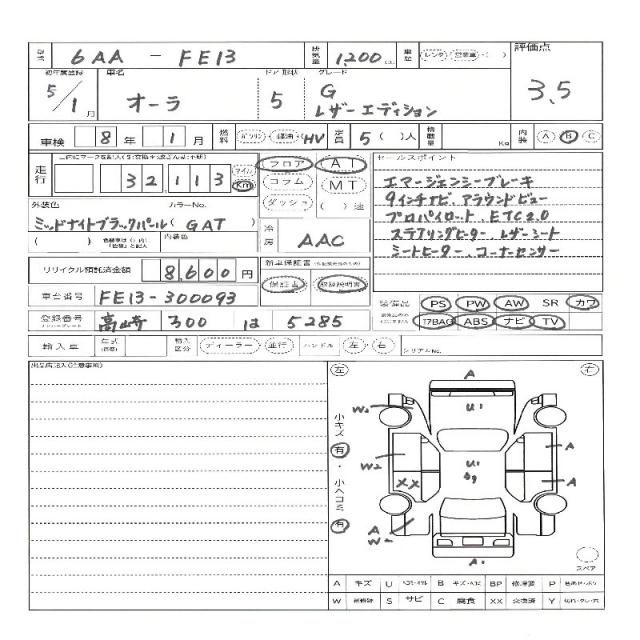 型式 6AA - FE13 排気量 1,200 cc 車歴 レンタ・営業車・( ) 評価点
初年度登録 車名 ドア 形状 グレード
5/1月 オーラ 5 G 3.5
レザーエディション
車検 8年 1月 燃料 ガソリン・軽油・HV 定員 5( )人 積載量 Kg 内装 A B C
走行 32,113 マイル Km フロア AT セールスポイント
コラム MT エマージェンシーブレーキ
外装色 カラーNo. ダッシュ ( )速 9インチナビ アラウンドビュー
ミッドナイトブラックパール(GAT) プロパイロット. ETC2.0
( ) 内装色 冷房 AAC ステアリングヒーター レザーシート
シートヒーター. コーナーセンサー
リサイクル預託済金額 8,600円 新車保証書
保証書 取扱説明書
車台番号 FE13-300093 装備品 PS PW AW SR カワ
登録番号 高崎 300 は 5285 エアBAG ABS ナビ TV
輸入車 年式 輸入区分 ディーラー・並行 ハンドル 左・右 シリアルNo.
出品店記入(注意事項) 左 右
A
W2 U1
小キズ 有・小ヘコミ 有
A
W2 U1
XX A
A
W2
A1 スペア
A キズ U B BP P
W S サビ C 腐食 XX 交換済 Y